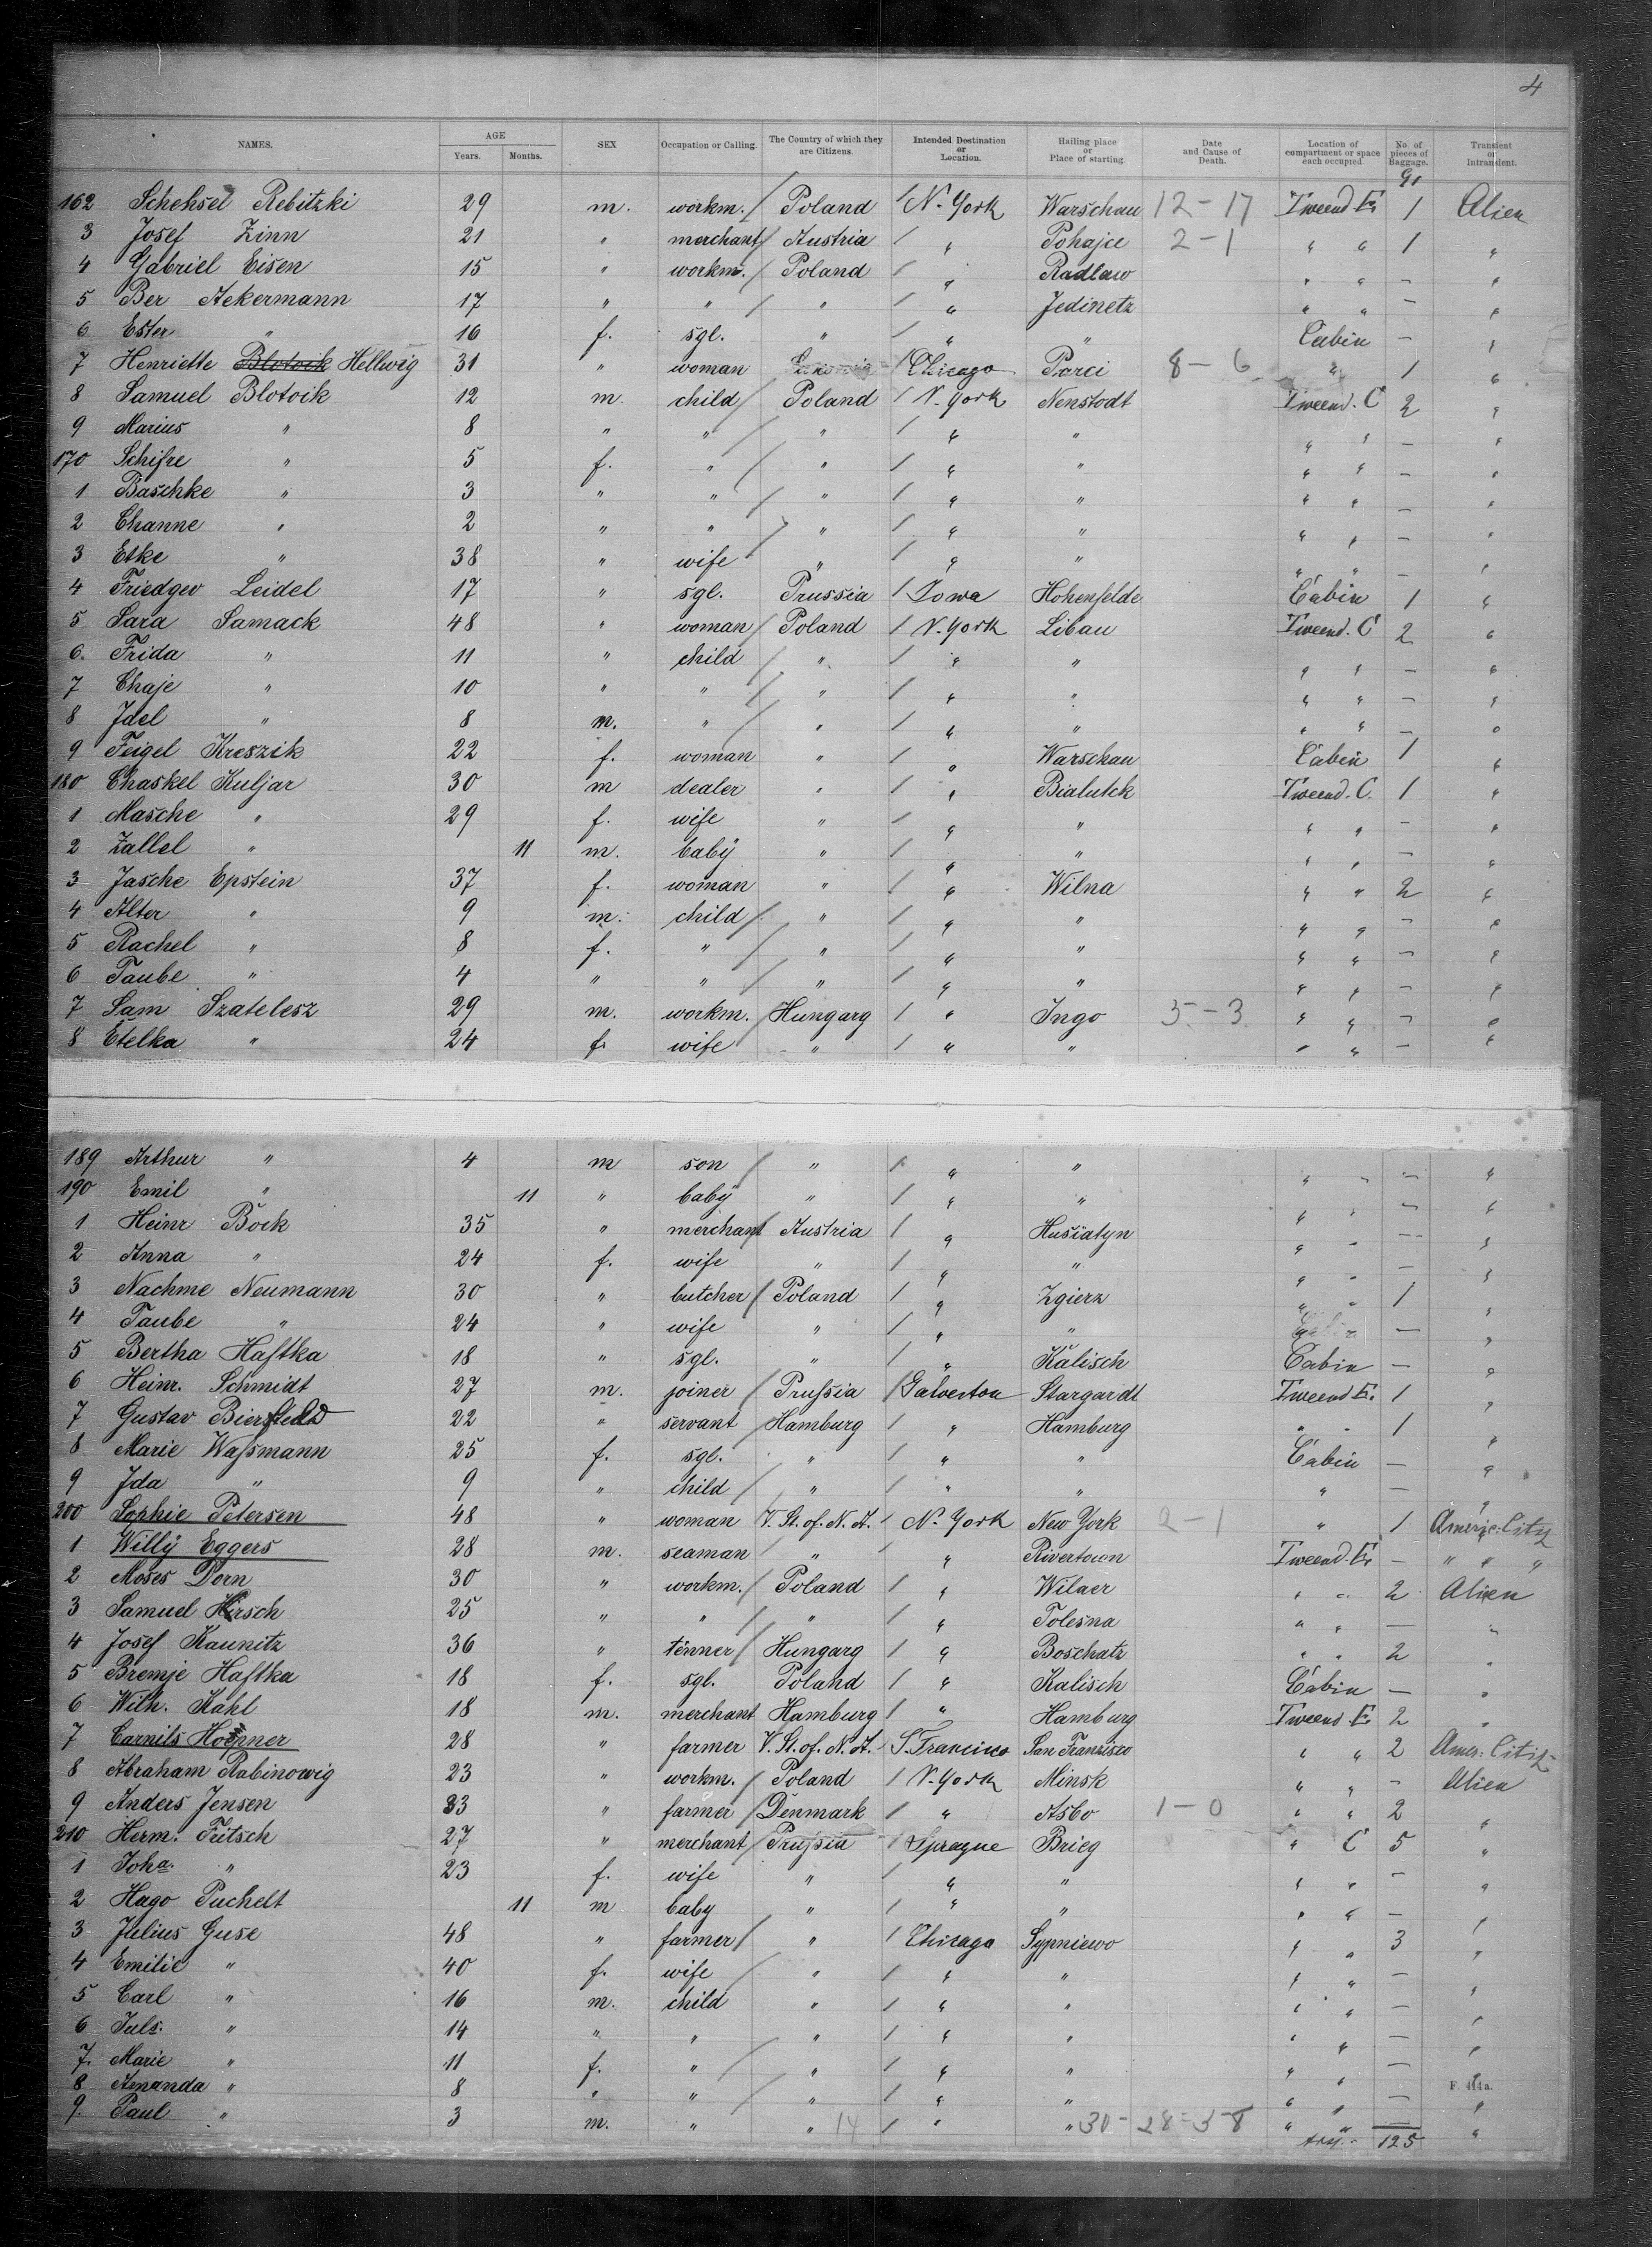 4
NAMES. AGE Years. Months. SEX Occupation or Calling. The Country of which they are Citizens. Intended Destination or Location. Hailing place or Place of starting. Date and Cause of Death. Location of compartment or space each occupied No. of pieces of Baggage. Transient or Intransient.
91
162 Schehsel Rebitzki 29 m. workm. / Poland / N. York Warschau 12-17 Tweend E. 1 Alien
3 Josef Zinn 21 " merchant / Austria / " Pohajce 2-1 " " 1 "
4 Gabriel Eisen 15 " workm. / Poland / " Radlaw " " - "
5 Ber Ackermann 17 " " / " / " Jedinetz " " - "
6 Ester " 16 f. sgl. " / " " Cabin - "
7 Henriette Blotoik Hellwig 31 " woman / Chicago Porci 8-6 " 1 "
8 Samuel Blotoik 12 m. child / Poland / N. York Nenstodt Tweend. C 2 "
9 Marius " 8 " " / " / " " " " - "
170 Schifre " 5 f. " / " / " " " " - "
1 Baschke " 3 " " / " / " " " " - "
2 Channe " 2 " " / " / " " " " - "
3 Etke " 38 " wife " / " " " " - "
4 Friedgev Leidel 17 " sgl. Prussia / Iowa Hohenfelde Cabin 1 "
5 Sara Samack 48 " woman / Poland / N. York Libau Tweend. C 2 "
6. Frida " 11 " child / " / " " " " - "
7 Chaje " 10 " " / " / " " " " - "
8 Jdel " 8 m. " / " / " " " " - "
9 Feigel Kreszik 22 f. woman " / " Warschau Cabin 1 "
180 Chaskel Kuljar 30 m dealer " / " Bialutck Tweend. C. 1 "
1 Masche " 29 f. wife " / " " " " - "
2 Zallel " 11 m. baby " / " " " " - "
3 Jasche Epstein 37 f. woman " / " Wilna " " 2 "
4 Alter " 9 m. child / " / " " " " - "
5 Rachel " 8 f. " / " / " " " " - "
6 Taube " 4 " " / " / " " " " - "
7 Sam Szatelesz 29 m. workm. / Hungarg / " Ingo 5-3 " " - "
8 Etelka " 24 f. wife " / " " " " - "
189 Arthur " 4 m son / " / " " " " - "
190 Emil " 11 " baby " / " " " " - "
1 Heinr Bock 35 " merchant / Austria / " Husiatyn " " - "
2 Anna " 24 f. wife " / " " " " - "
3 Nachme Neumann 30 " butcher / Poland / " Zgierz " " 1 "
4 Taube " 24 " wife " / " " - "
5 Bertha Haftka 18 " sgl. " / " Kalisch Cabin - "
6 Heinr. Schmidt 27 m. joiner / Prussia / Galveston Stargardt Tweend E. 1 "
7 Gustav Bierfeld 22 " servant / Hamburg / " Hamburg " " 1 "
8 Marie Wassmann 25 f. sgl. " / " " Cabin - "
9 Jda " 9 " child / " / " " " - "
200 Sophie Petersen 48 " woman V. St. of. N. A. / N. York New York 2-1 " 1 Americ: City
1 Willy Eggers 28 m. seaman / " / " Rivertown Tweend. E. - " " "
2 Moses Dorn 30 " workm. / Poland / " Wilner " " 2 Alien
3 Samuel Hirsch 25 " " / " / " Tolesna " " - "
4 Josef Kaunitz 36 " tenner / Hungarg / " Boschatz " " 2 "
5 Bremje Haftka 18 f. sgl. Poland / " Kalisch Cabin - "
6 Wilh. Kahl 18 m. merchant Hamburg / " Hamburg Tweend E. 2 "
7 Carnils Hoepner 28 " farmer V. St. of. N. A. S. Francisco San Franzisco " " 2 Amer: Citiz
8 Abraham Rabinowig 23 " workm. / Poland / N. York Minsk " " - Alien
9 Anders Jensen 33 " farmer / Denmark / " Asbo 1-0 " " 2 "
210 Herm. Fritsch 27 " merchant / Prussia / Sprague Brieg " C 5 "
1 Joha. " 23 f. wife " / " " " " - "
2 Hago Puchelt 11 m baby " / " " " " - "
3 Julius Guse 48 " farmer / " / Chicago Sypniewo " " 3 "
4 Emilie " 40 f. wife / " / " " " " - "
5 Carl " 16 m. child " / " " " " - "
6 Juls. " 14 " " " / " " " " - "
7. Marie " 11 f. " / " / " " " " - "
8 Amanda " 8 " " / " / " " " " - "
F. 414a.
9. Paul " 3 m. " " 14 / " " 30-28-3-8 " " - "
125